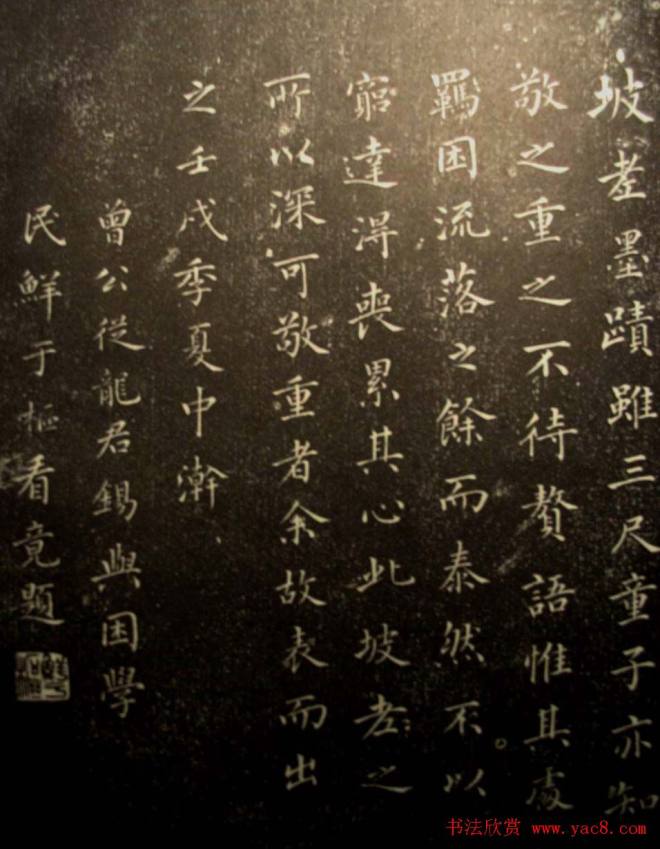 坡老墨蹟雖三尺童子亦知
敬之重之不待贅語惟其處
羈困流落之餘而泰然不以
窮達淂喪累其心此坡老之
所以深可敬重者余故表而出
之壬戌季夏中澣
曾公從龍君錫與困學
民鮮于樞看竟題
书法欣赏 www.yac8.com